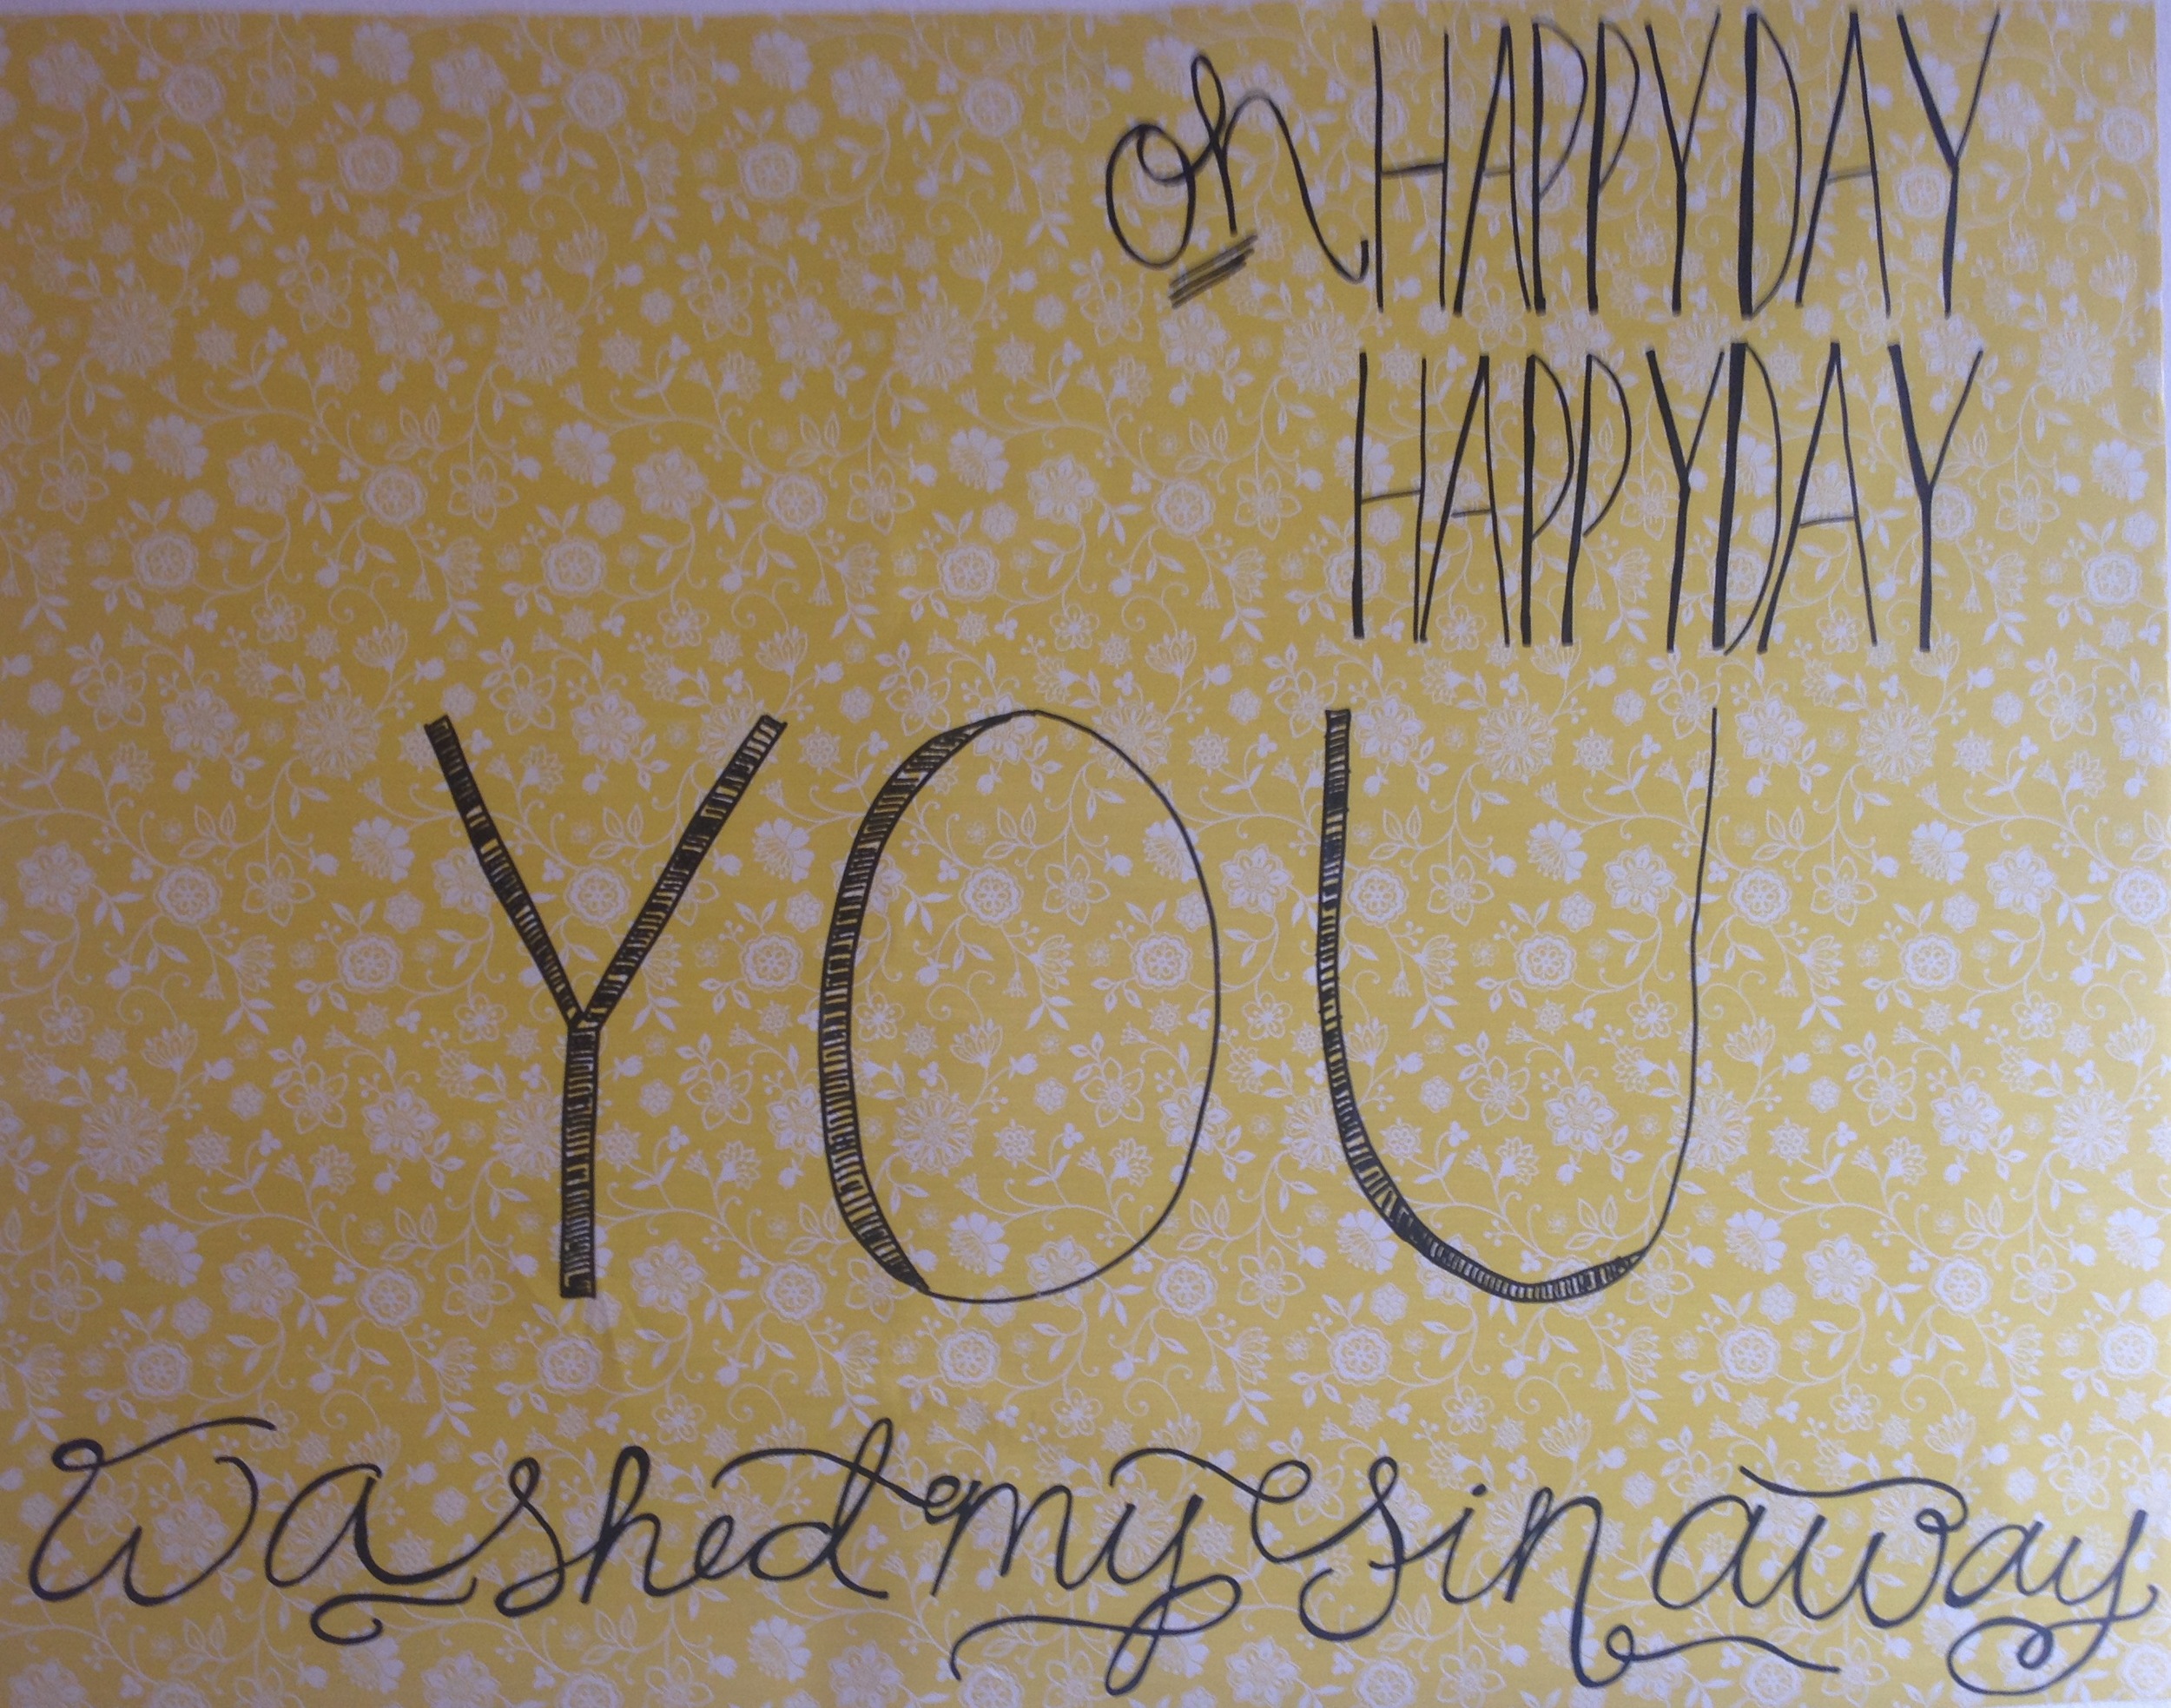 oh HAPPY DAY
HAPPY DAY
YOU
washed my sin away